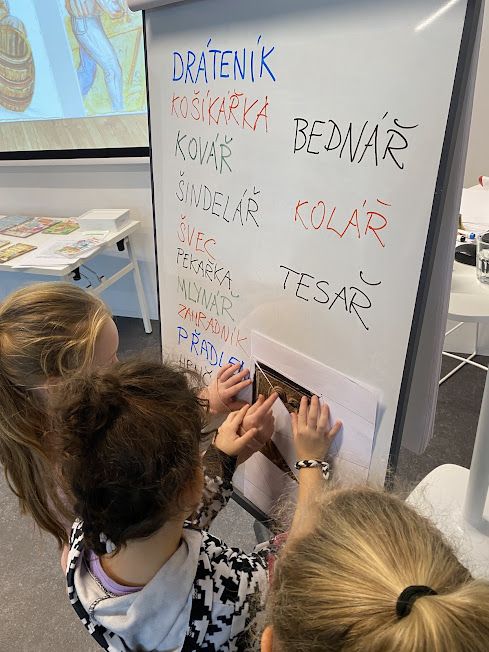 DRÁTENÍK
KOŠÍKÁŘKA
KOVÁŘ
ŠINDELÁŘ
ŠVEC
PEKAŘKA
MLYNÁŘ
ZAHRADNÍK
BEDNÁŘ
KOLÁŘ
TESAŘ